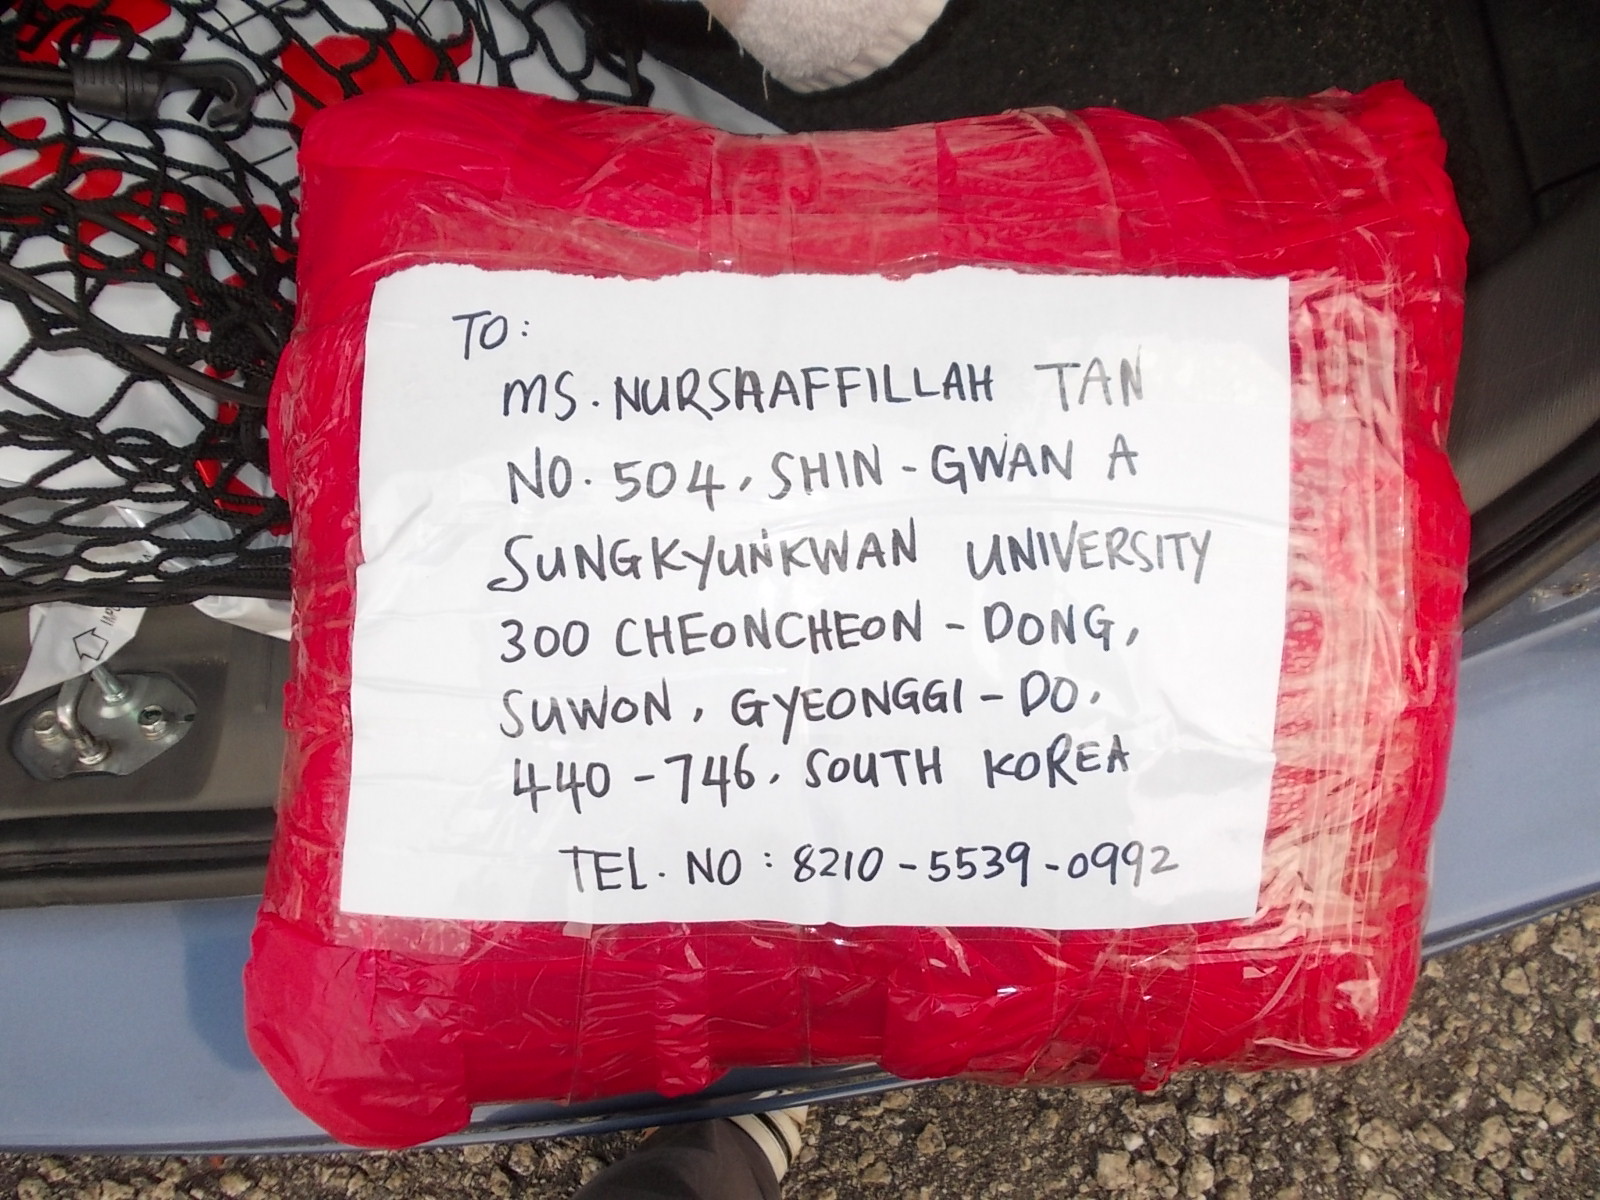 TO:
MS. NURSHAAFFILLAH TAN
NO. 504, SHIN - GWAN A
SUNGKYUNKWAN UNIVERSITY
300 CHEONCHEON - DONG,
SUWON, GYEONGGI - DO.
440 - 746, SOUTH KOREA
TEL. NO : 8210 - 5539 - 0992